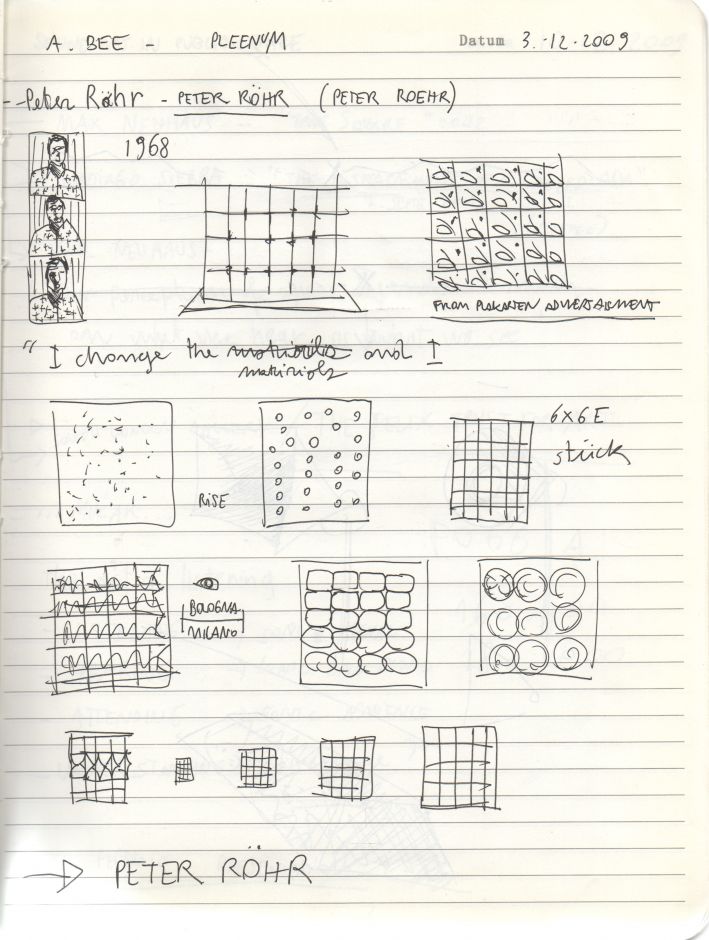 A. BEE - PLEENUM Datum 3.-12-2009
--Peter Röhr - PETER RÖHR (PETER ROEHR)
1968
FROM PLAKATEN ADVERTAISMENT
" I change the matirials and I
matirials
6x6E
stück
RISE
BOLOGNA
MILANO
→ PETER RÖHR